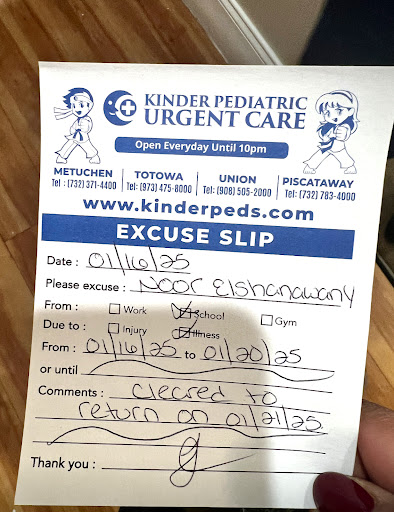 KINDER PEDIATRIC
URGENT CARE
Open Everyday Until 10pm
METUCHEN TOTOWA UNION PISCATAWAY
Tel : (732) 371-4400 Tel: (973) 475-8000 Tel: (908) 505-2000 Tel: (732) 783-4000
www.kinderpeds.com
EXCUSE SLIP
Date : 01/16/25
Please excuse : Noor Elshanawany
From : Work School Gym
Due to : Injury Illness
From : 01/16/25 to 01/20/25
or until
Comments : cleared to
return on 01/21/25
Thank you :